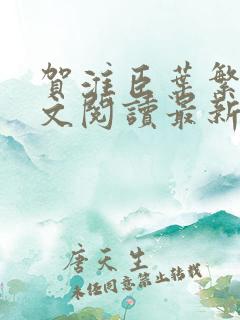 賀淮臣葉繁
文閱讀最新
唐天生
未经同意禁止转载